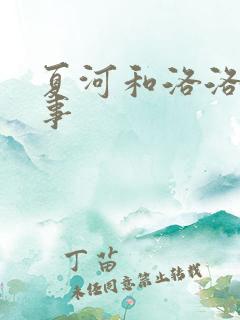 夏河和洛洛
事
丁苗
未经同意禁止转载